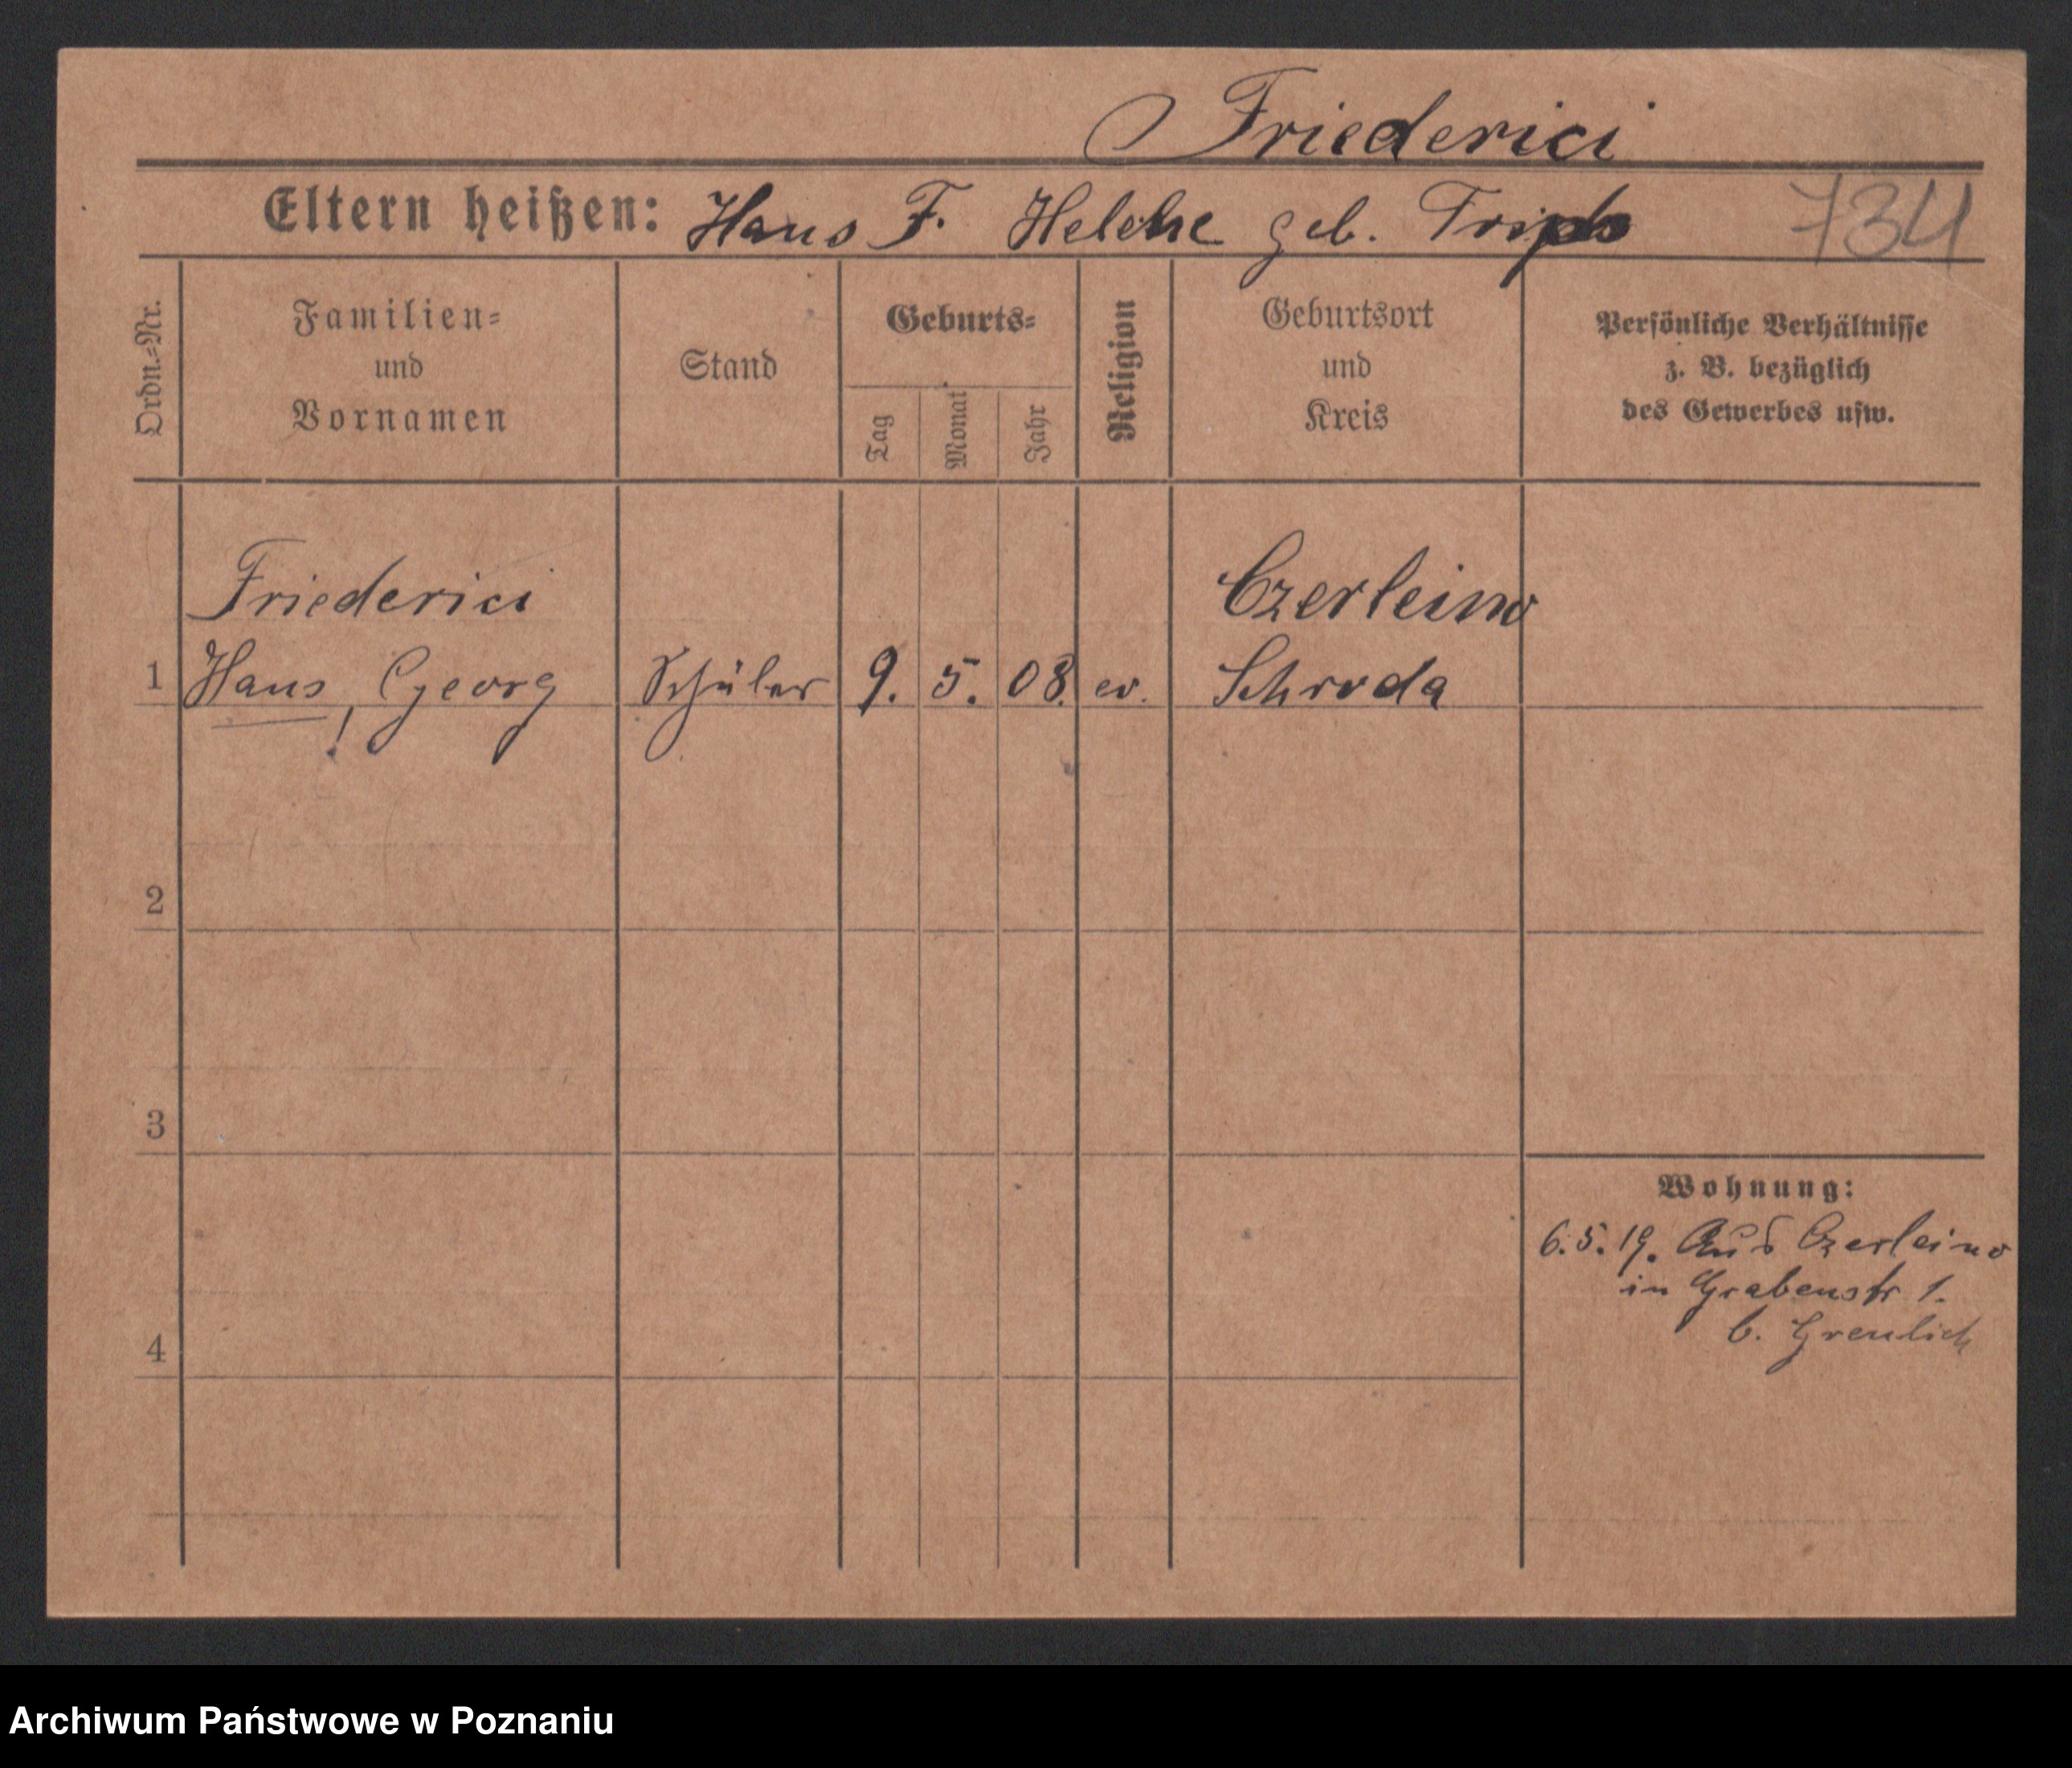 Friederici
Eltern heißen: Hans F. Helene geb.
734
Ordn.-Nr.
Familien-
und
Vornamen
Stand
Geburts-
Tag
Monat
Jahr
Religion
Geburtsort
und
Kreis
Persönliche Verhältnisse
z. B. bezüglich
des Gewerbes usw.
Friederici
Czerleino
1 Hans, Georg Schüler 9. 5. 08. ev. Schroda
2
3
Wohnung:
6.5.19. Aus Czerleino
in Grabenstr 1.
b. Greulich
4
Archiwum Państwowe w Poznaniu